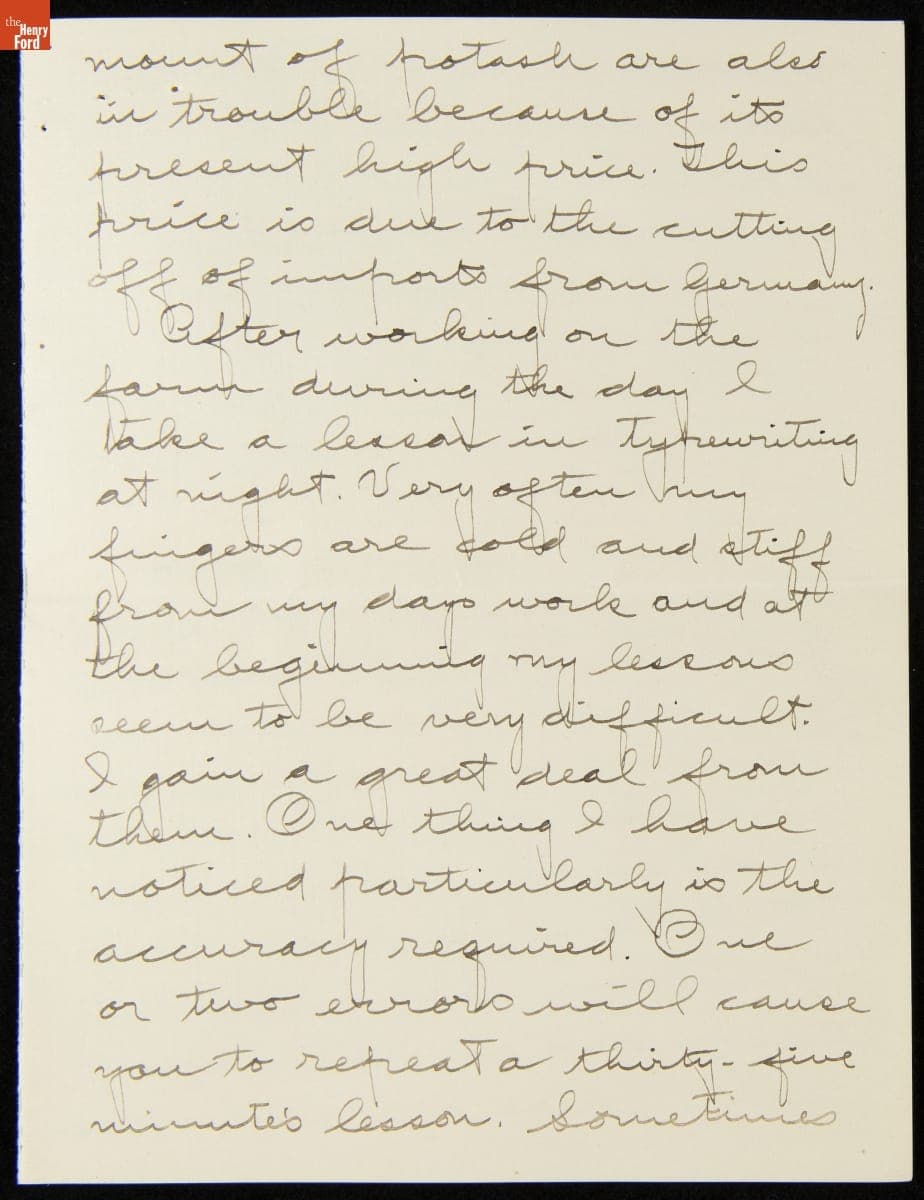 the
Henry
Ford
mount of potash are also
in trouble because of its
present high price. This
price is due to the cutting
off of imports from Germany.
After working on the
farm during the day I
take a lesson in typewriting
at night. Very often my
fingers are cold and stiff
from my days work and at
the beginning my lessons
seem to be very difficult.
I gain a great deal from
them. One thing I have
noticed particularly is the
accuracy required. One
or two errors will cause
you to repeat a thirty-five
minute's lesson. Sometimes